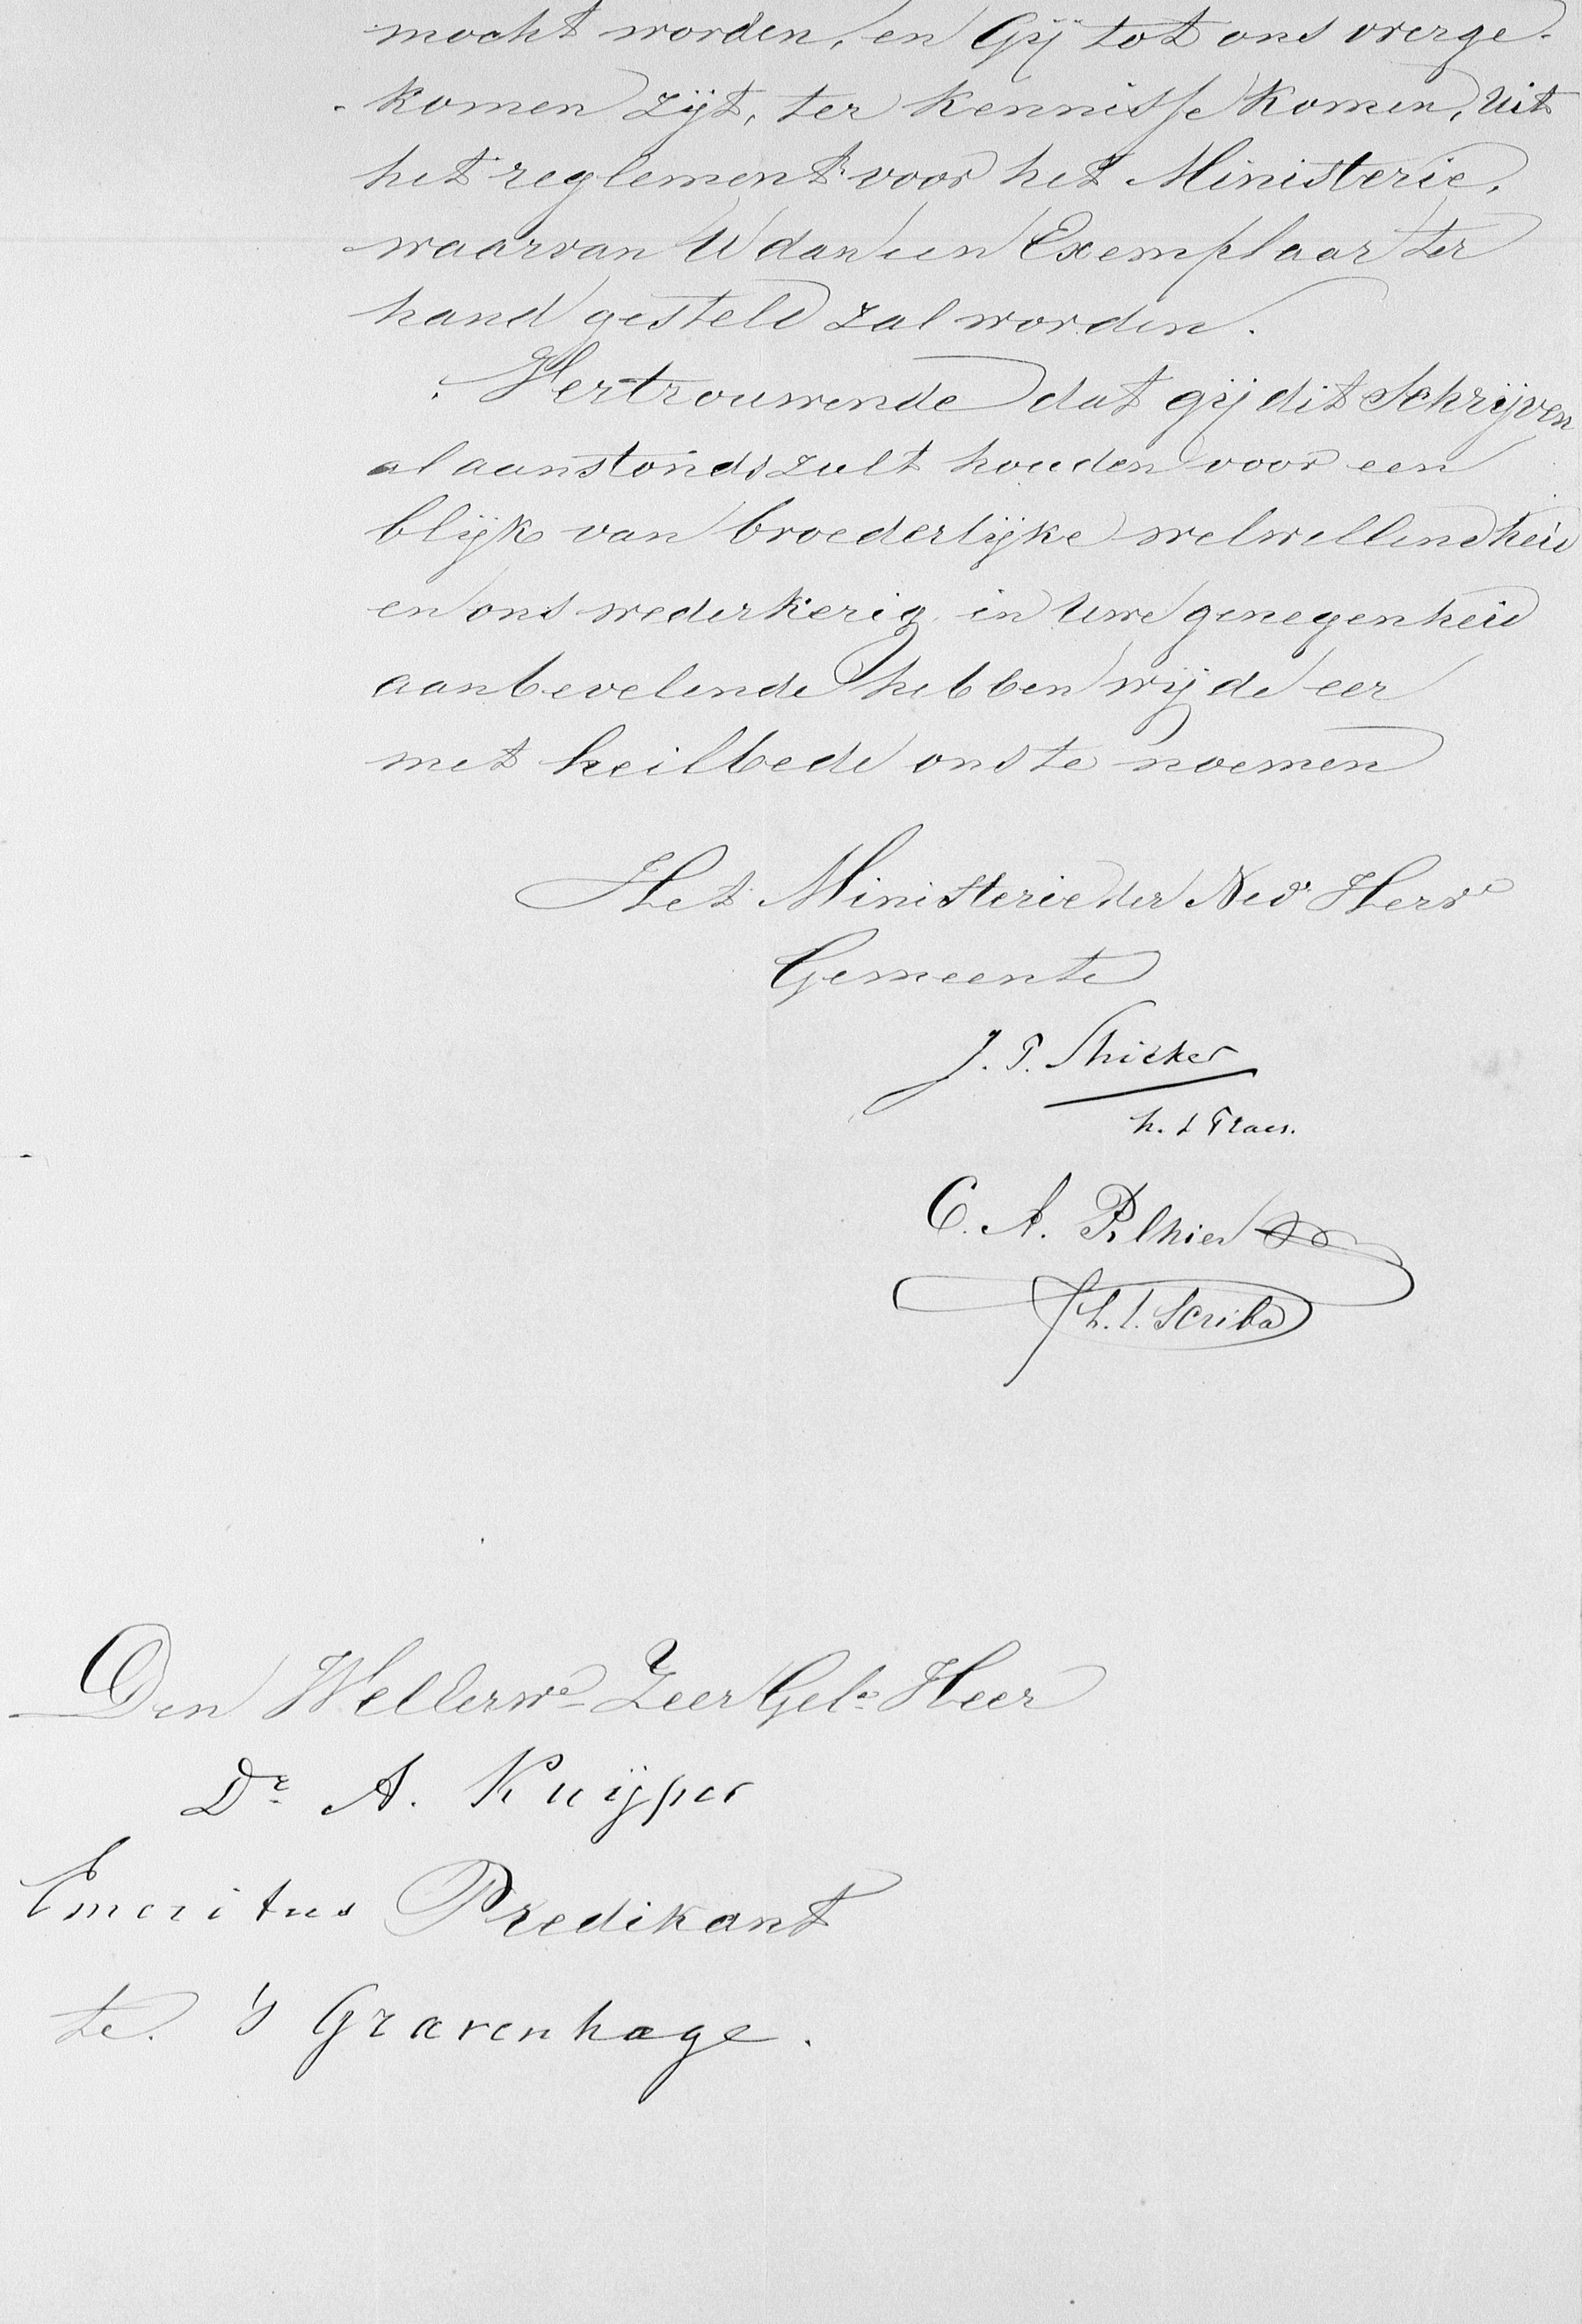 mocht worden, en Gij tot ons overge-
-komen zijt, ter kennisse komen, uit
het reglement voor het Ministerie,
waarvan U dan een Exemplaar ter
hand gesteld zal worden.
Vertrouwende dat gij dit Schrijven
al aanstonds zult houden voor een
blijk van broederlijke welwillendheid
en ons wederkerig in Uwe genegenheid
aanbevelende hebben wij de eer
met heilbede ons te noemen
Het Ministerie der Ned. Herv.e
Gemeente
J. P. Stricker
h. t. Praes.
C. A.
h. t. Scriba
Den WelEerw.e ZeerGel.e Heer
Dr. A. Kuijper
Emeritus Predikant
te 's Gravenhage.